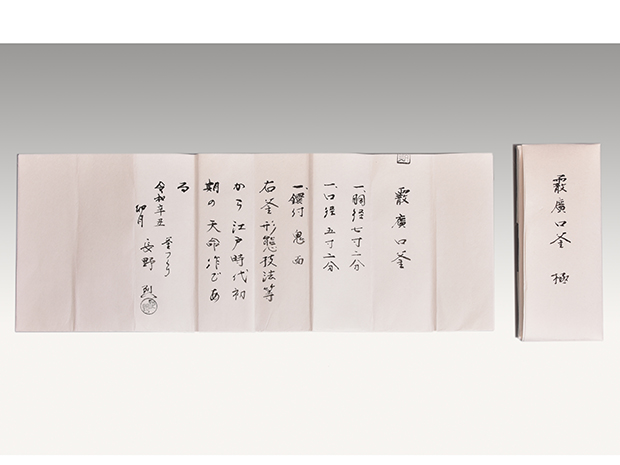 霰廣口釜 極
霰廣口釜
一、胴径七寸二分
一、口径五寸二分
一、鐶付 鬼面
右釜形態技法等
から江戸時代初
期の天命作であ
る
令和辛丑 釜つくり
卯月 長野 烈